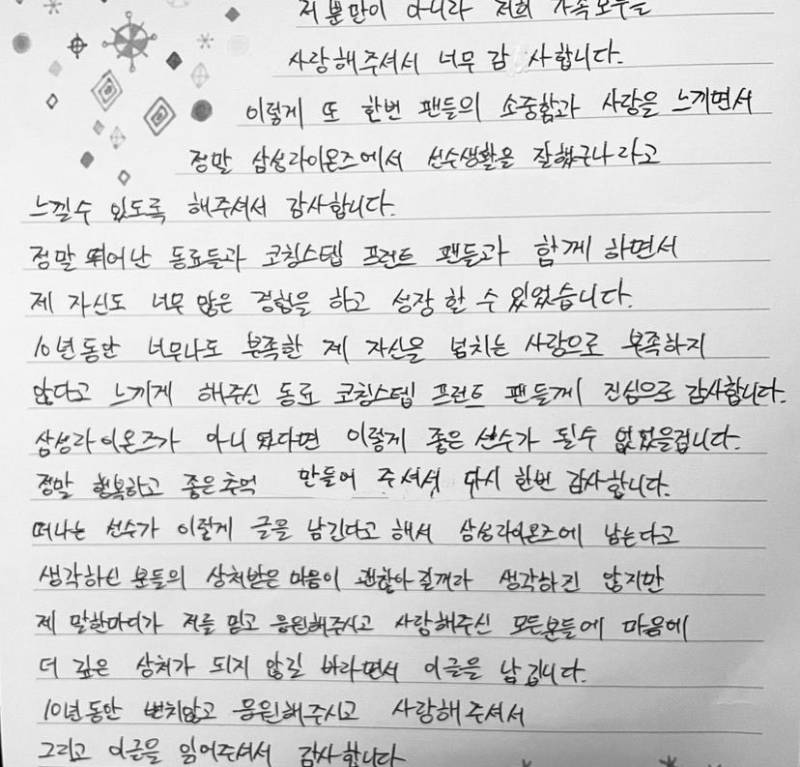 저 뿐만이 아니라 저희 가족모두를
사랑해주셔서 너무 감 사합니다.
이렇게 또 한번 팬들의 소중함과 사랑을 느끼면서
정말 삼성라이온즈에서 선수생활을 잘했구나라고
느낄수 있도록 해주셔서 감사합니다.
정말 뛰어난 동료들과 코칭스텝 프런트 팬들과 함께 하면서
제 자신도 너무 많은 경험을 하고 성장 할 수 있었습니다.
10년동안 너무나도 부족한 제 자신을 넘치는 사랑으로 부족하지
않다고 느끼게 해주신 동료 코칭스텝 프런트 팬들께 진심으로 감사합니다.
삼성라이온즈가 아니였다면 이렇게 좋은 선수가 될수 없었을겁니다.
정말 행복하고 좋은추억 만들어 주셔서 다시 한번 감사합니다.
떠나는 선수가 이렇게 글을 남긴다고 해서 삼성라이온즈에 남는다고
생각하신 분들의 상처받은 마음이 괜찮아 질꺼라 생각하진 않지만
제 말한마디가 저를 믿고 응원해주시고 사랑해주신 모든분들에 마음에
더 깊은 상처가 되지 않길 바라면서 이글을 남깁니다.
10년동안 변치않고 응원해주시고 사랑해주셔서
그리고 이글을 읽어주셔서 감사합니다